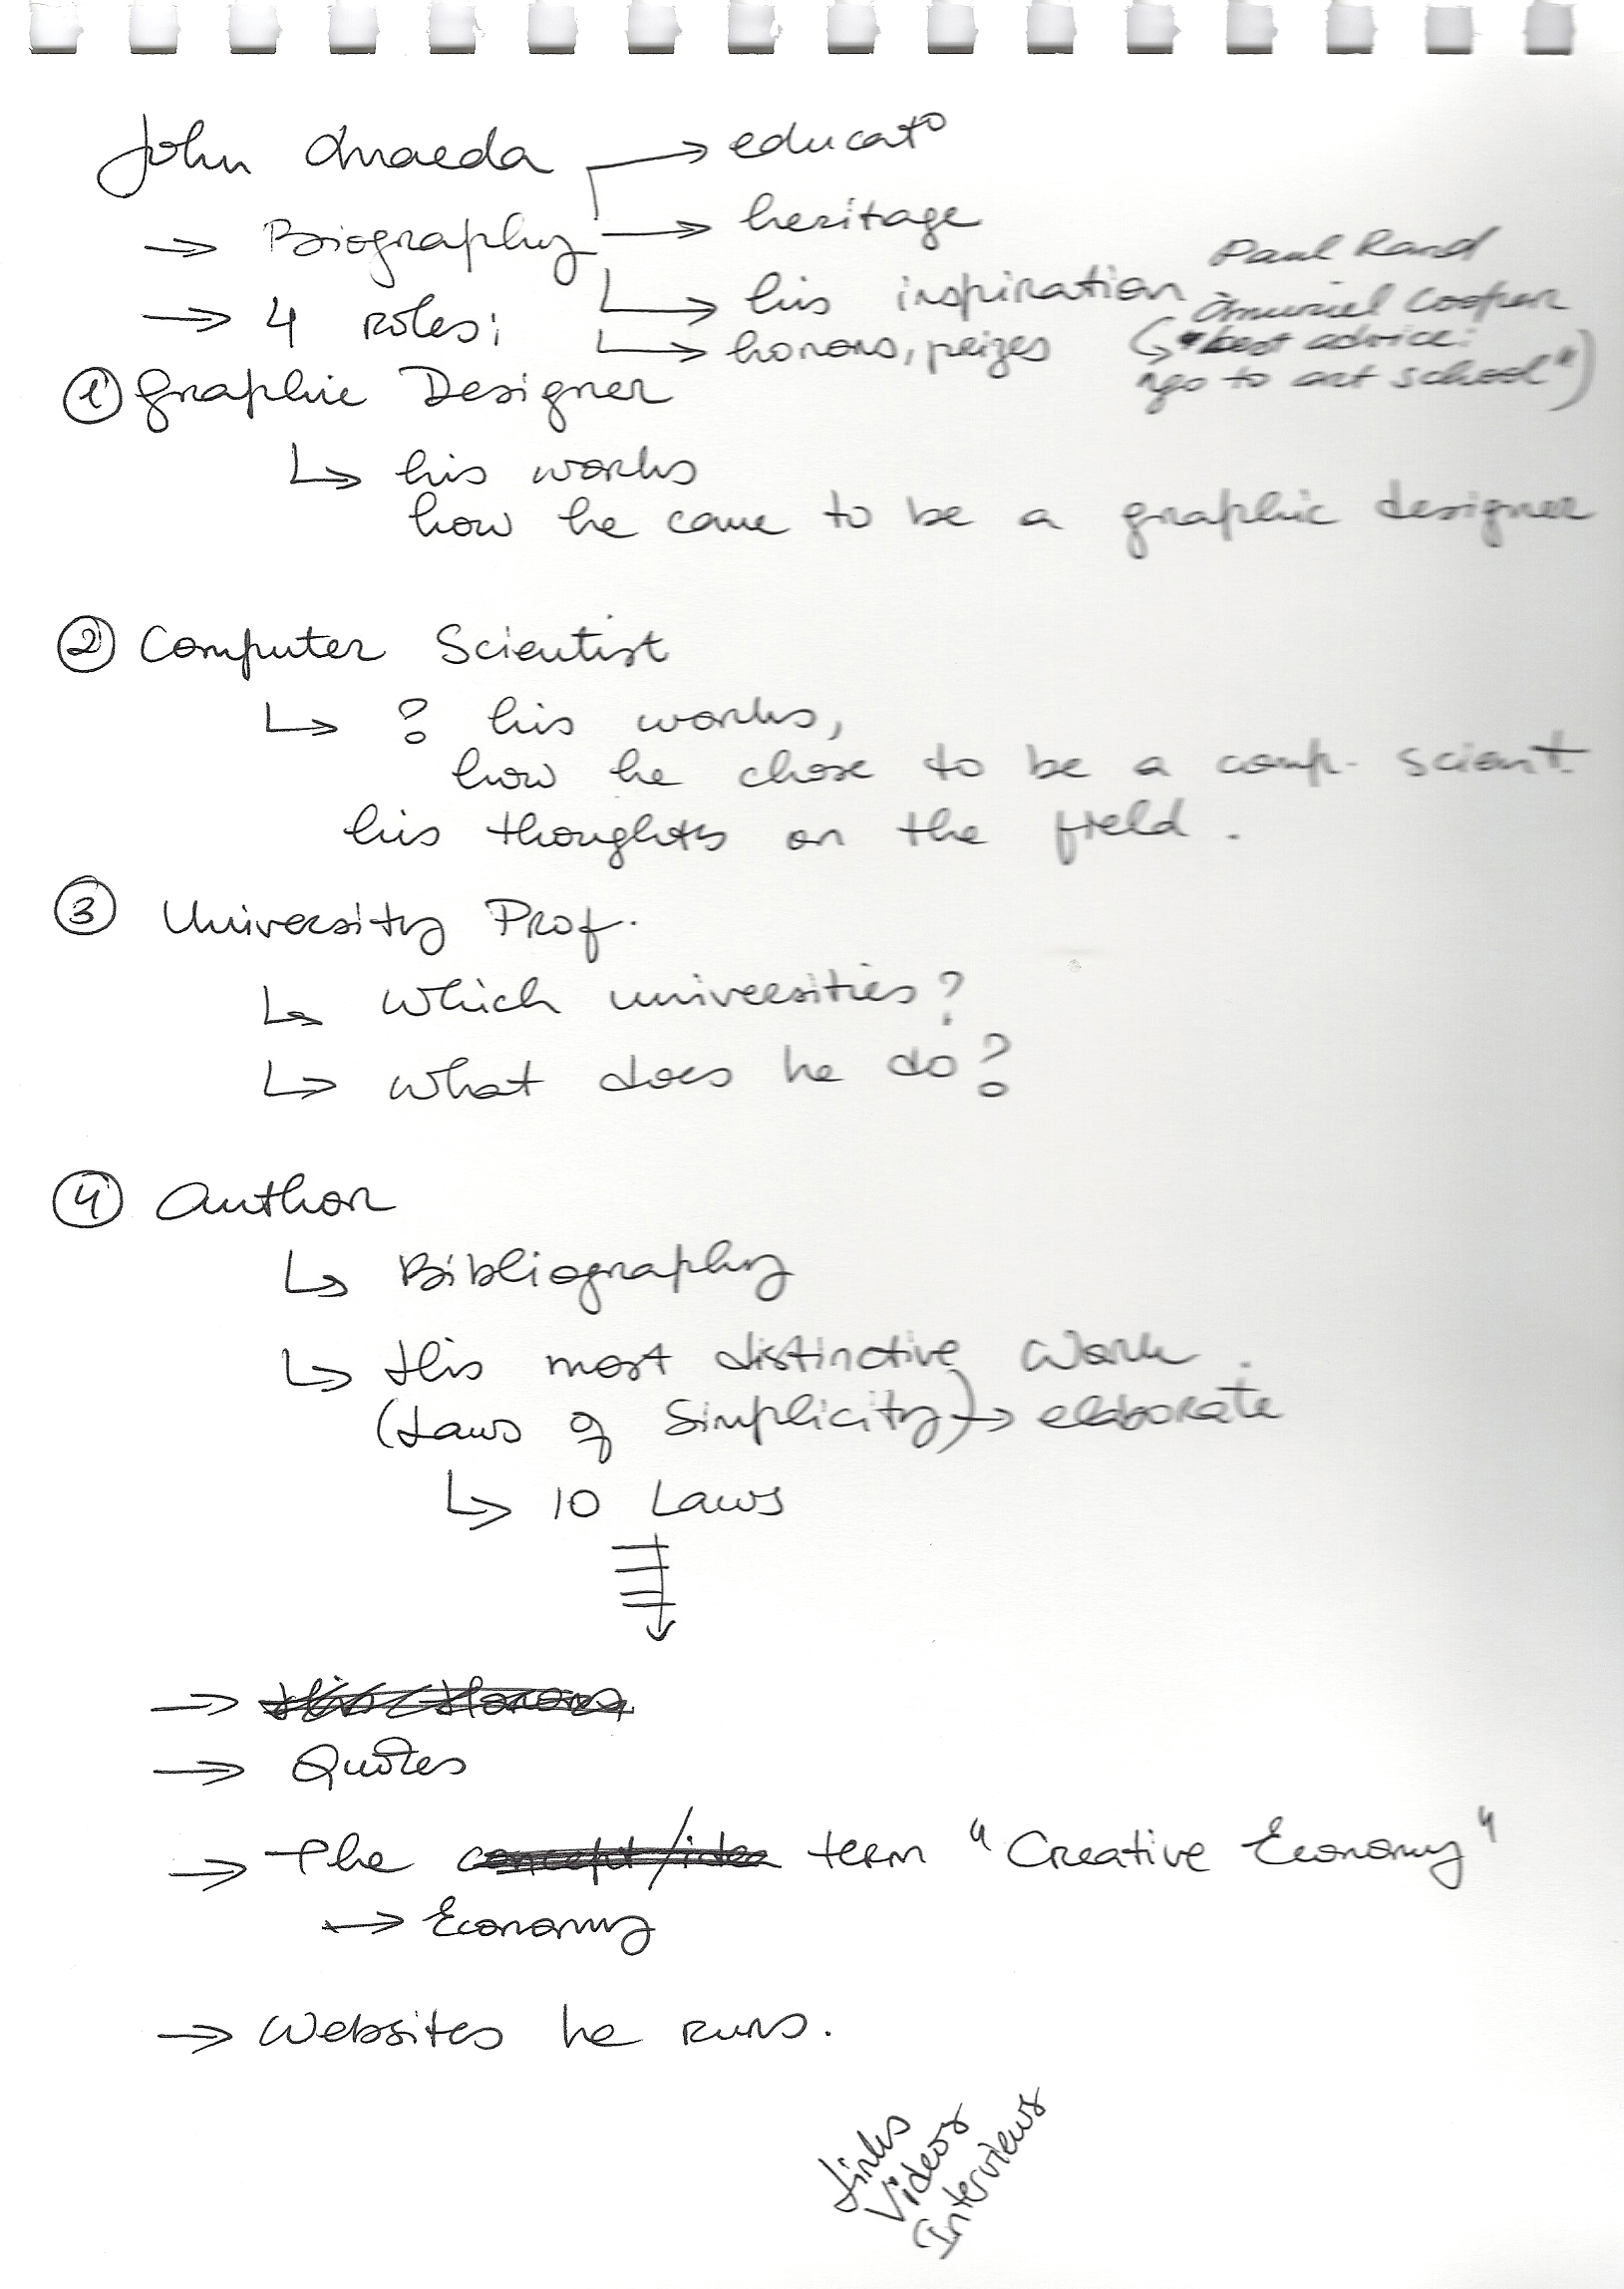 John Maeda → educat°
→ Biography → heritage
→ his inspiration Paul Rand
Muriel Cooper
→ 4 roles: → honors, prizes
(↳ "best advice:
"go to art school")
① Graphic Designer
↳ his works
how he came to be a graphic designer
② Computer Scientist
↳ ? his works,
how he chose to be a comp. scient.
his thoughts on the field.
③ University Prof.
↳ Which universities?
↳ What does he do?
④ Author
↳ Bibliography
↳ His most distinctive Work.
(Laws of Simplicity) → elaborate
↳ 10 Laws
→ His Honors
→ Quotes
→ The concept/idea term "Creative Economy"
→ Economy
→ Websites he runs.
Links
Videos
Interviews